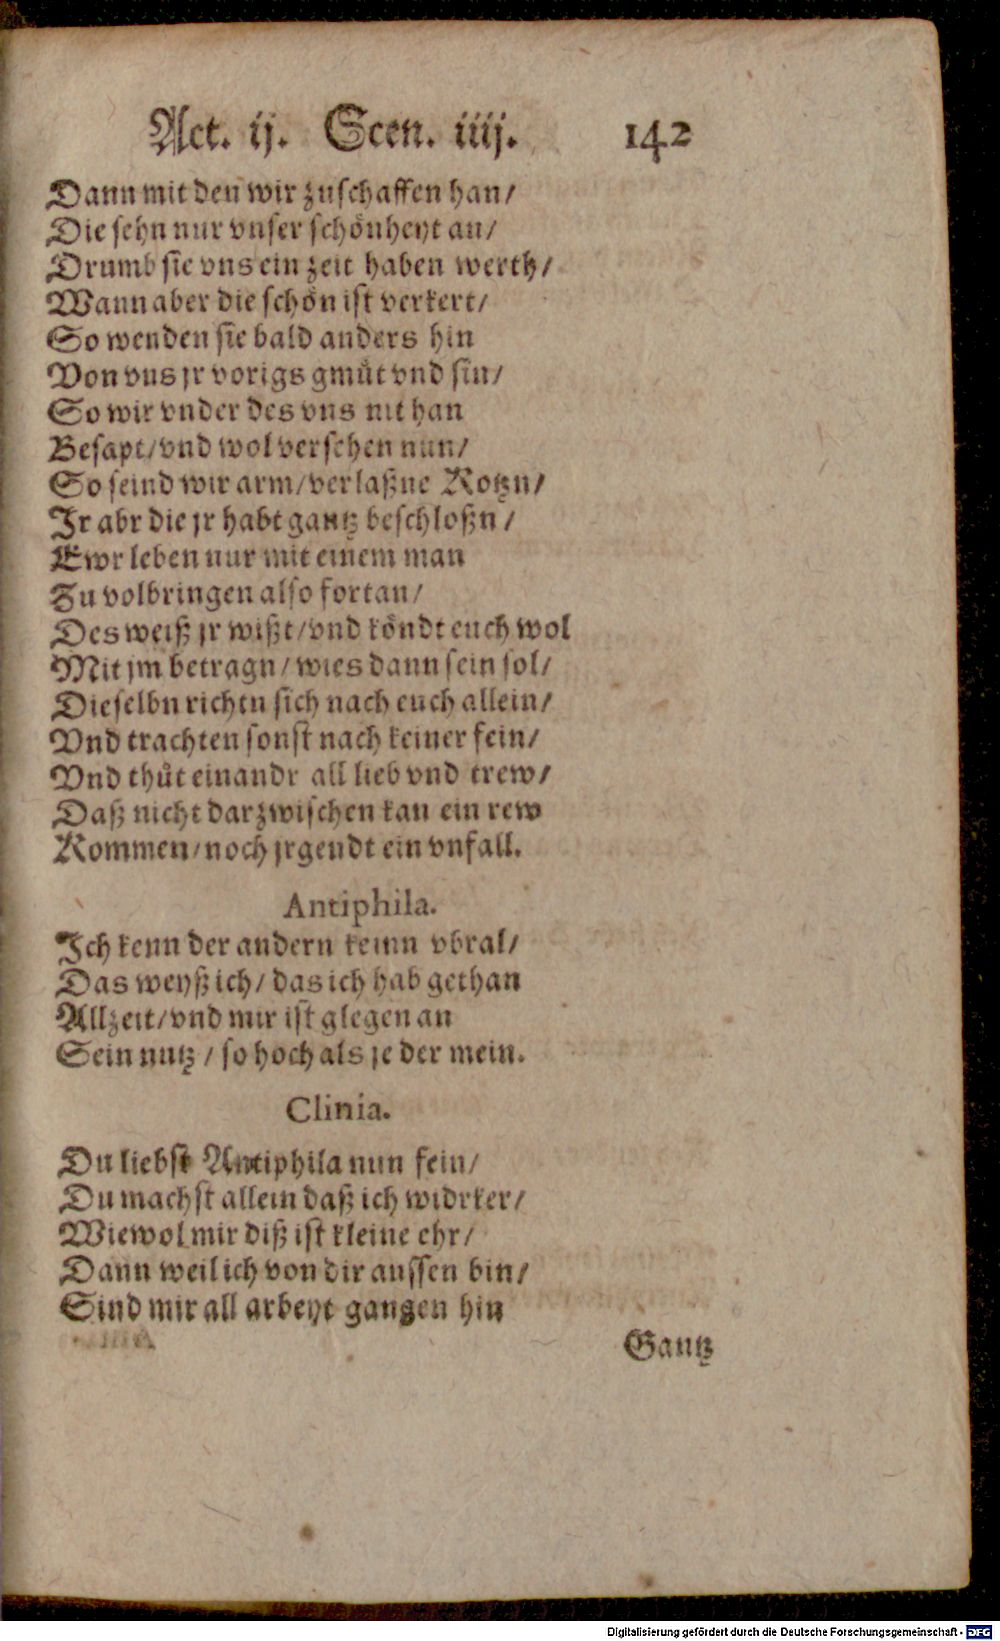 Act. ij. Scen. iiij. 142
Dann mit den wir zuschaffen han/
Die sehn nur vnser schönheyt an/
Drumb sie vns ein zeit haben werth/
Wann aber die schön ist verkert/
So wenden sie bald anders hin
Von vns jr vorigs gmüt vnd sin/
So wir vnder des vns nit han
Besapt/vnd wol versehen nun/
So seind wir arm/verlaßne Kotzn/
Jr abr die jr habt gantz beschloßn/
Ewr leben nur mit einem man
Zu volbringen also fortan/
Des weiß jr wißt/vnd köndt euch wol
Mit jm betragn/wies dann sein sol/
Dieselbn richtn sich nach euch allein/
Vnd trachten sonst nach keiner fein/
Vnd thůt einandr all lieb vnd trew/
Daß nicht darzwischen kan ein rew
Kommen/noch jrgendt ein vnfall.
Antiphila.
Ich kenn der andern keinn vbral/
Das weyß ich/das ich hab gethan
Allzeit/vnd mir ist glegen an
Sein nutz/so hoch als je der mein.
Clinia.
Du liebst Antiphila nun fein/
Du machst allein daß ich widrker/
Wiewol mir diß ist kleine ehr/
Dann weil ich von dir aussen bin/
Sind mir all arbeyt gangen hin
Gantz
Digitalisierung gefördert durch die Deutsche Forschungsgemeinschaft - DFG